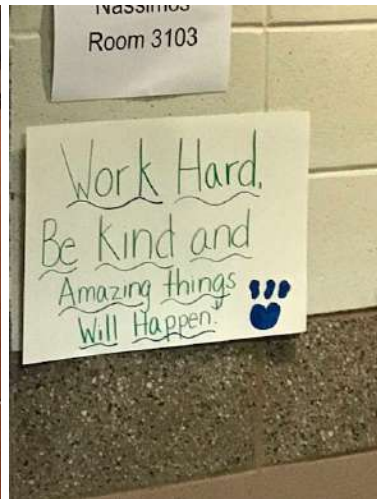 Nassimos
Room 3103
Work Hard,
Be Kind and
Amazing things
Will Happen!